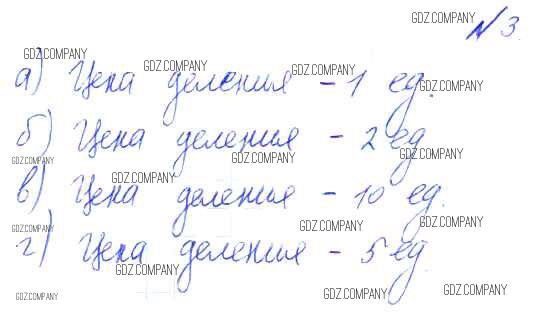 GDZ.COMPANY
№ 3.
GDZ.COMPANY
GDZ.COMPANY
GDZ.COMPANY
а) Цена деления – 1 ед.
GDZ.COMPANY
б) Цена деления – 2 ед
GDZ.COMPANY
GDZ.COMPANY
GDZ.COMPANY
в) Цена деления – 10 ед.
GDZ.COMPANY
GDZ.COMPANY
GDZ.COMPANY
GDZ.COMPANY
г) Цена деления – 5 ед
GDZ.COMPANY
GDZ.COMPANY
GDZ.COMPANY
GDZ.COMPANY